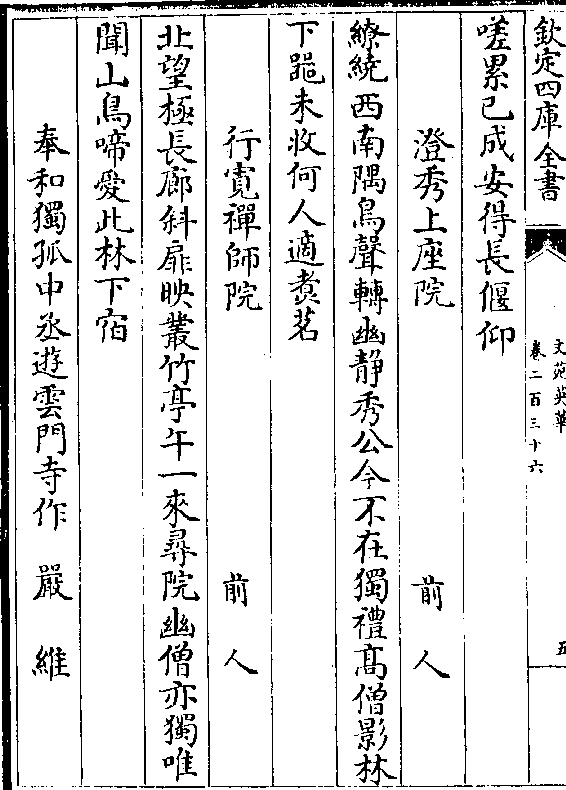 欽定四庫全書
文苑英華
卷二百三十六
五
嗟累已成安得長偃仰
澄秀上座院 前人
繚繞西南隅鳥聲轉幽静秀公今不在獨禮髙僧影林
下噐未收何人適煑茗
行寛禪師院 前人
北望極長廊斜扉映叢竹亭午一來尋院幽僧亦獨唯
聞山鳥啼愛此林下宿
奉和獨孤中丞遊雲門寺作 嚴維